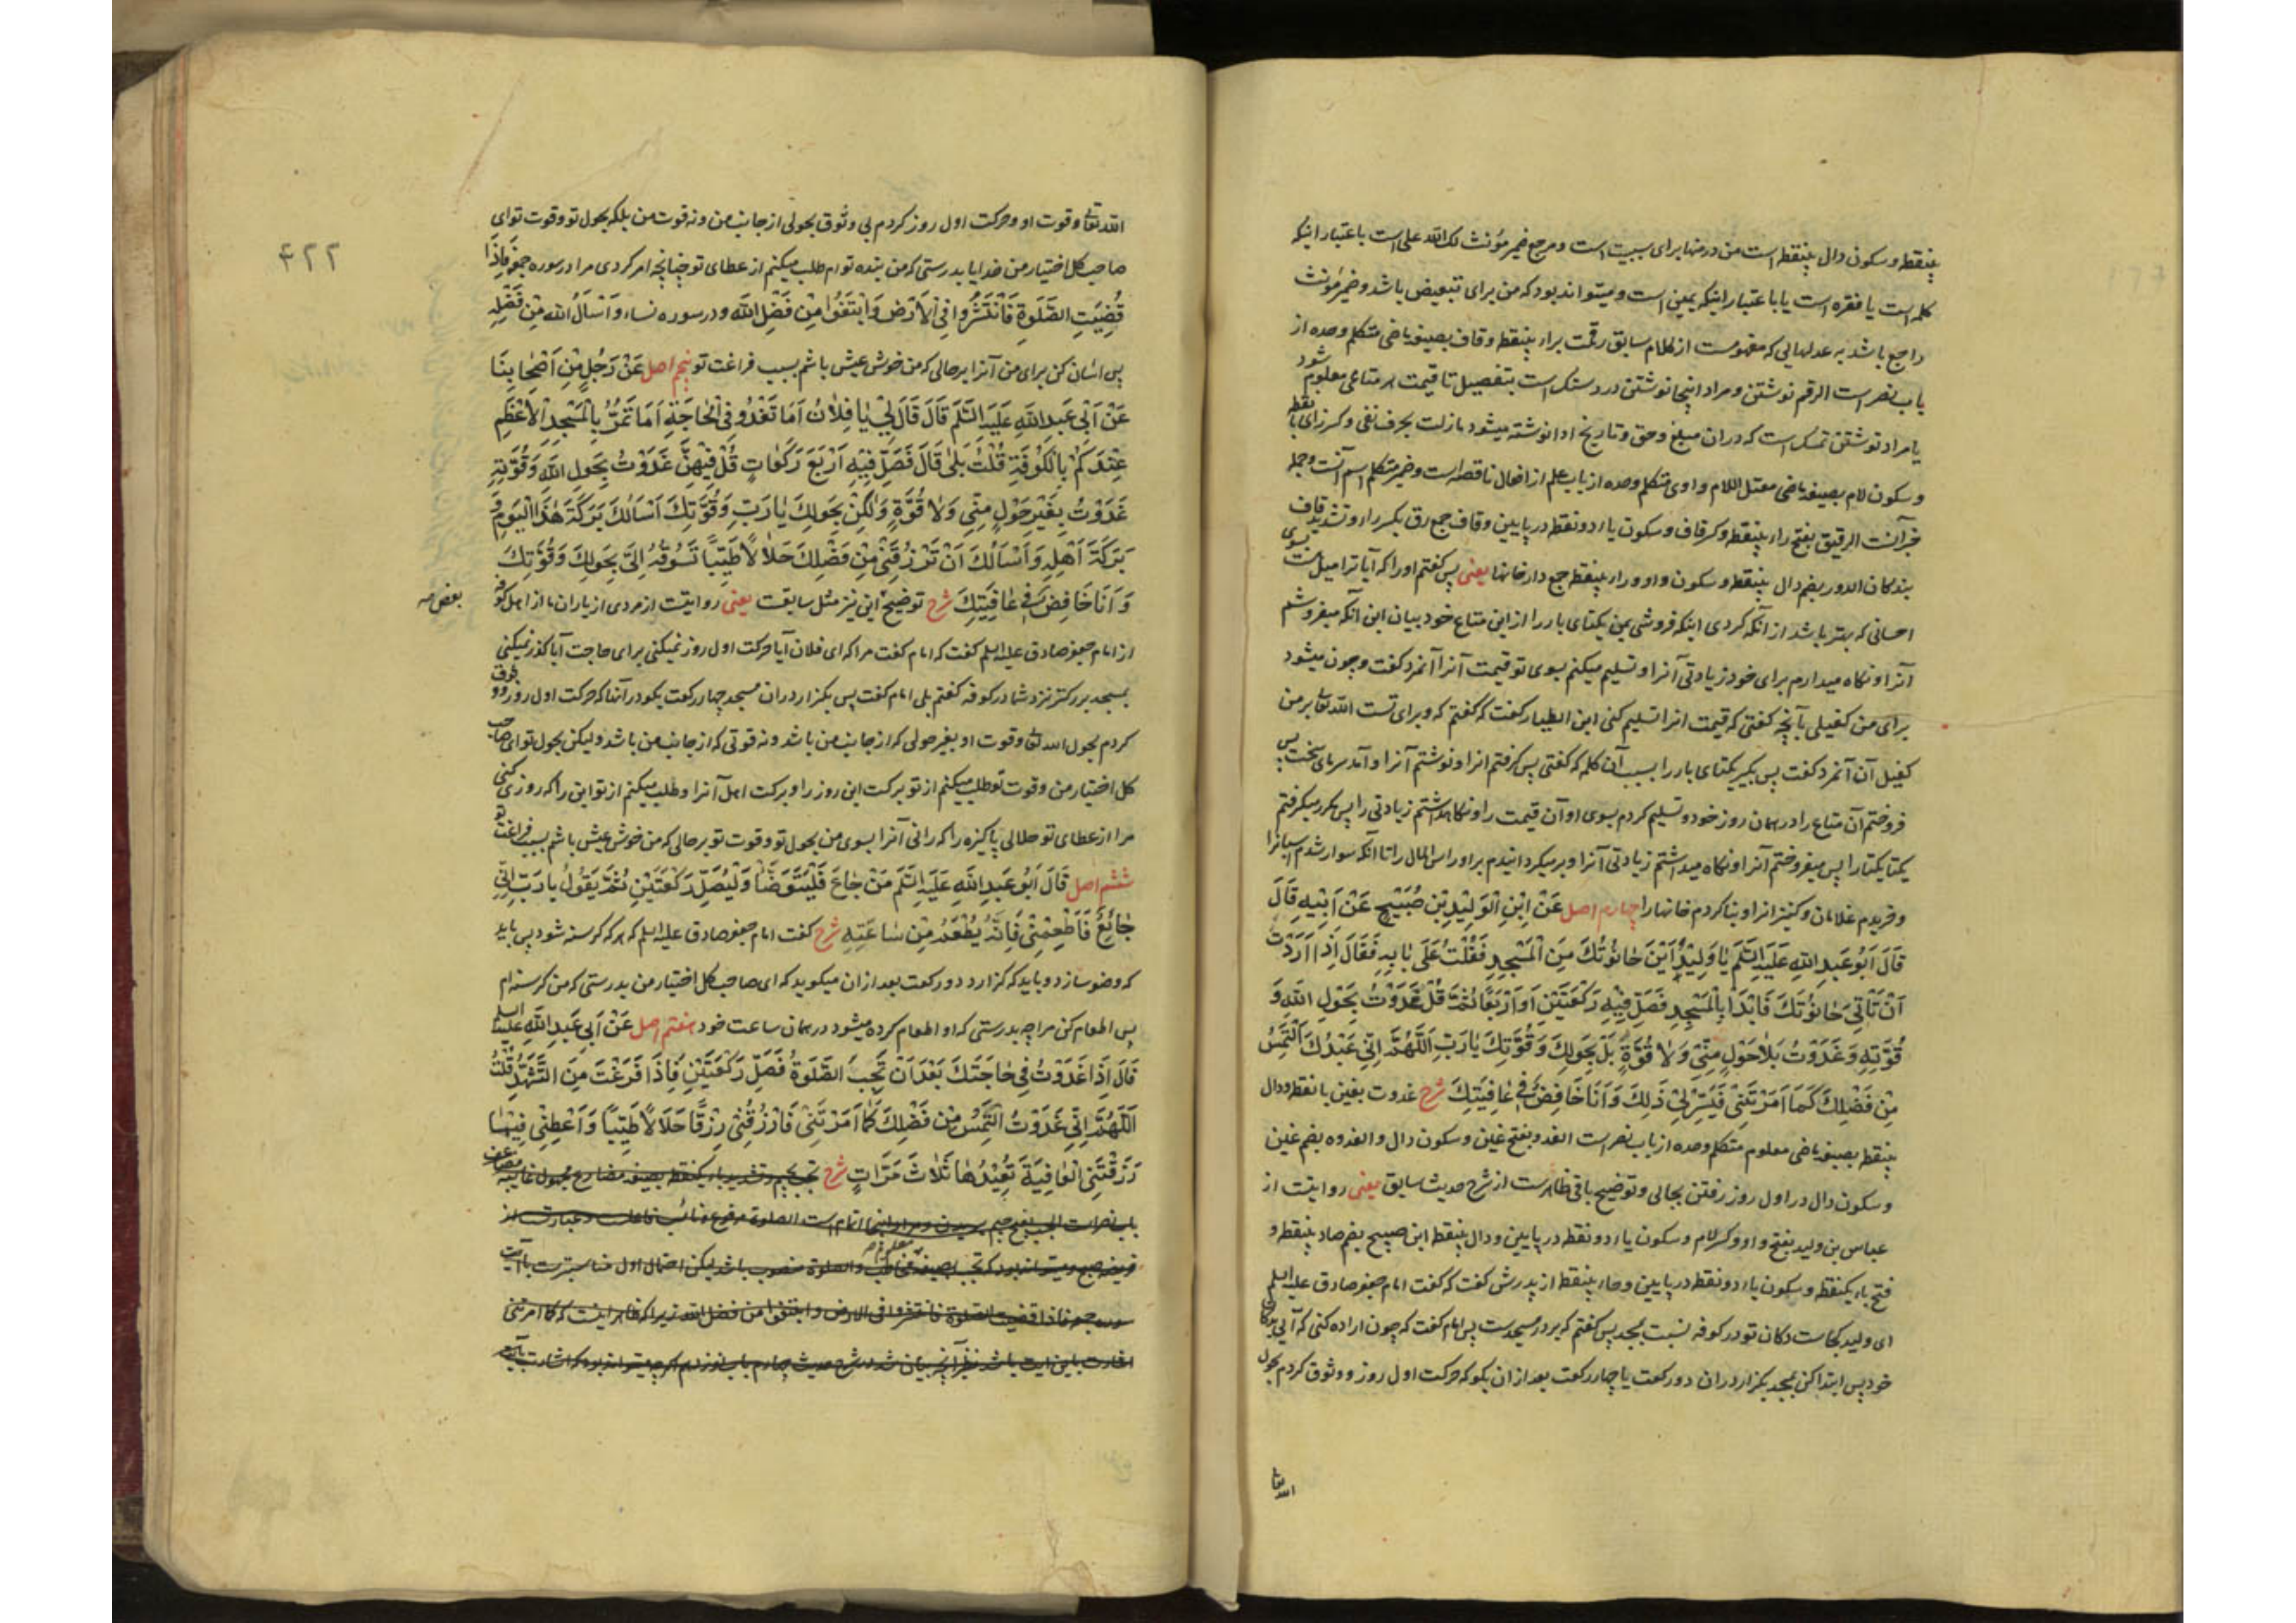 بینقطه و سکون دال بینقطه است من در منها برای سببیت است و مرجع ضمیر مؤنث لک الله علی است باعتبار اینکه
کلمه است یا فقره است یا باعتبار اینکه یمین است و میتواند بود که من برای تبعیض باشد و ضمیر مؤنث
راجع باشد به عدلهایی که مفهومست از کلام سابق رقمت براء بینقطه و قاف بصیغه ماضی متکلم وحده از
باب نصر است الرقم نوشتن و مراد اینجا نوشتن در دستک است بتفصیل تا قیمت هر متاعی معلوم شود
یا مراد نوشتن تمسک است که در آن مبلغ و حق و تاریخ ادا نوشته میشود ما زلت بحرف نفی و کسر زای با نقطه
و سکون لام بصیغه ماضی معتل اللام واوی متکلم وحده از باب علم از افعال ناقصه است و ضمیر متکلم اسم آنست و جمله
خبر آنست الرقیق بفتح راء بینقطه و کسر قاف و سکون یاء دو نقطه در پایین و قاف جمع رق بکسر راء و تشدید قاف
بندکان الدور بضم دال بینقطه و سکون واو و راء بینقطه جمع دار خانها یعنی پس کفتم او را که آیا ترا میل هست بسوی
احسانی که بهتر باشد از آنکه کردی اینکه فروشی بمن یکتای بار را از این متاع خود بیان این آنکه میفروشم
آنرا و نکاه میدارم برای خود زیادتی آنرا و تسلیم میکنم بسوی تو قیمت آنرا آنمرد کفت و چون میشود
برای من کفیلی بآنچه کفتی که قیمت انرا تسلیم کنی ابن الطیار کفت که کفتم که و برای تست الله تعالی بر من
کفیل آن آنمرد کفت پس بکیر یکتای بار را بسبب آن کلمه که کفتی پس کرفتم انرا و نوشتم آنرا و آمد سرمای سخت پس
فروختم آن متاع را در همان روز خود و تسلیم کردم بسوی او آن قیمت را و نکاهداشتم زیادتی را پس مکرر میکرفتم
یکتا یکتا را پس میفروختم آنرا و نکاه میداشتم زیادتی آنرا و برمیکردانیدم بر او راس المال را تا آنکه سوار شدم اسبانرا
و خریدم غلامان و کنیزانرا و بنا کردم خانها را چهارم اصل عَنْ اِبْنِ الْوَلِیْدِ بْنِ صُبَیْحٍ عَنْ اَبِیْهِ قَالَ
قَالَ اَبُو عَبْدِ اللهِ عَلَیْهِ السَّلَمُ یَا وَلِیْدُ اَیْنَ حَانُوتُكَ مِنَ الْمَسْجِدِ فَقُلْتُ عَلَی بَابِهِ فَقَالَ اِذَا اَرَدْتَ
اَنْ تَأْتِیَ حَانُوتَكَ فَابْدَأْ بِالْمَسْجِدِ فَصَلِّ فِیْهِ رَکْعَتَیْنِ اَوْ اَرْبَعًا ثُمَّ قُلْ غَدَوْتُ بِحَوْلِ اللهِ وَ
قُوَّتِهِ وَ غَدَوْتُ بِلَا حَوْلٍ مِنِّی وَلَا قُوَّةٍ بَلْ بِحَوْلِكَ وَ قُوَّتِكَ یَا رَبِّ اَللّٰهُمَّ اِنِّی عَبْدُكَ اَلْتَمِسُ
مِنْ فَضْلِكَ کَمَا اَمَرْتَنِی فَیَسِّرْ لِی ذَلِكَ وَ اَنَا خَافِضٌ فِی عَافِیَتِكَ شرح غدوت بغین با نقطه و دال
بینقطه بصیغه ماضی معلوم متکلم وحده از باب نصر است الغدو بفتح غین و سکون دال و الغدوه بضم غین
و سکون دال در اول روز رفتن بجائی و توضیح باقی ظاهرست از شرح حدیث سابق یعنی روایتست از
عباس بن ولید بفتح واو و کسر لام و سکون یاء دو نقطه در پایین و دال بینقطه ابن صبیح بضم صاد بینقطه و
فتح باء یکنقطه و سکون یاء دو نقطه در پایین و حاء بینقطه از پدرش کفت که کفت امام جعفر صادق علیه السلم
ای ولید کجاست دکان تو در کوفه نسبت بمسجد پس کفتم که بر در مسجدست پس امام کفت که چون اراده کنی که آیی بدکان
خود پس ابتدا کن بمسجد بکزار در ان دو رکعت یا چهار رکعت بعد از ان بکو که حرکت اول روز و وثوق کردم بحول
الله تعالی
۴۲۲
الله تعالی و قوت او و حرکت اول روز کردم بی وثوق بحولی از جانب من و نه قوت من بلکه بحول تو و قوت تو ای
صاحب کل اختیار من خدایا بدرستی که من بنده توام طلب میکنم از عطای تو چنانچه امر کردی مرا در سوره جمعه فَاِذَا
قُضِیَتِ الصَّلٰوةُ فَانْتَشِرُوا فِی الْاَرْضِ وَ ابْتَغُوا مِنْ فَضْلِ اللهِ و در سوره نساء وَ اسْأَلُوا اللهَ مِنْ فَضْلِهِ
پس اسان کن برای من آنرا بر حالی که من خوش عیش باشم بسبب فراغت تو پنجم اصل عَنْ رَجُلٍ مِنْ اَصْحَابِنَا
عَنْ اَبِی عَبْدِ اللهِ عَلَیْهِ السَّلَمُ قَالَ قَالَ لِی یَا فُلَانُ اَمَا تَغْدُو فِی الْحَاجَةِ اَمَا تَمُرُّ بِالْمَسْجِدِ الْاَعْظَمِ
عِنْدَکُمْ بِالْکُوفَةِ قُلْتُ بَلٰی قَالَ فَصَلِّ فِیْهِ اَرْبَعَ رَکَعَاتٍ قُلْ فِیْهِنَّ غَدَوْتُ بِحَوْلِ اللهِ وَ قُوَّتِهِ
غَدَوْتُ بِغَیْرِ حَوْلٍ مِنِّی وَلَا قُوَّةٍ وَلٰکِنْ بِحَوْلِكَ یَا رَبِّ وَ قُوَّتِكَ اَسْأَلُكَ بَرَکَةَ هٰذَا الْیَوْمِ وَ
بَرَکَةَ اَهْلِهِ وَ اَسْأَلُكَ اَنْ تَرْزُقَنِی مِنْ فَضْلِكَ حَلَالًا طَیِّبًا تَسُوقُهُ اِلَیَّ بِحَوْلِكَ وَ قُوَّتِكَ
وَ اَنَا خَافِضٌ فِی عَافِیَتِكَ شرح توضیح این نیز مثل سابقست یعنی روایتست از مردی از یاران ما از اهل کوفه
بعض صه
از امام جعفر صادق علیه السلم کفت که امام کفت مرا که ای فلان آیا حرکت اول روز نمیکنی برای حاجت آیا کذر نمیکنی
بمسجد بزرکتر نزد شما در کوفه کفتم بلی امام کفت پس بکزار در ان مسجد چهار رکعت بکو در آنها که حرکت اول روز و وثوق
کردم بحول الله تعالی و قوت او بغیر حولی که از جانب من باشد و نه قوتی که از جانب من باشد و لیکن بحول تو ای صاحب
کل اختیار من و قوت تو طلب میکنم از تو برکت این روز را و برکت اهل آنرا و طلب میکنم از تو این را که روزی کنی
مرا از عطای تو حلالی پاکیزه را که رانی آنرا بسوی من بحول تو و قوت تو بر حالی که من خوش عیش باشم بسبب فراغت تو
ششم اصل قَالَ اَبُو عَبْدِ اللهِ عَلَیْهِ السَّلَمُ مَنْ جَاعَ فَلْیَتَوَضَّأْ وَلْیُصَلِّ رَکْعَتَیْنِ ثُمَّ یَقُولُ یَا رَبِّ اِنِّی
جَائِعٌ فَاَطْعِمْنِی فَاِنَّهُ یُطْعَمُ مِنْ سَاعَتِهِ شرح کفت امام جعفر صادق علیه السلم که هر که کرسنه شود پس باید
که وضو سازد و باید که کزارد دو رکعت بعد از ان میکوید که ای صاحب کل اختیار من بدرستی که من کرسنه ام
پس اطعام کن مرا چه بدرستی که او اطعام کرده میشود در همان ساعت خود هفتم اصل عَنْ اَبِی عَبْدِ اللهِ عَلَیْهِ السلم
قَالَ اِذَا غَدَوْتَ فِی حَاجَتِكَ بَعْدَ اَنْ تَجِبَ الصَّلٰوةُ فَصَلِّ رَکْعَتَیْنِ فَاِذَا فَرَغْتَ مِنَ التَّشَهُّدِ قُلْتَ
اَللّٰهُمَّ اِنِّی غَدَوْتُ اَلْتَمِسُ مِنْ فَضْلِكَ کَمَا اَمَرْتَنِی فَارْزُقْنِی رِزْقًا حَلَالًا طَیِّبًا وَ اَعْطِنِی فِیْمَا
رَزَقْتَنِی الْعَافِیَةَ تُعِیْدُهَا ثَلَاثَ مَرَّاتٍ شرح تجب بجیم و تشدید باء یکنقطه بصیغه مضارع مجهول غایبه
باب نصر است الجب بفتح جیم بریدن و مراد اینجا اتمام است الصلوة مرفوع و نائب فاعلست و عبارتست از
فریضه صبح و میتواند بود که تجب بصیغه مخاطب و الصلوة منصوب باشد لیکن احتمال اول مناسبترست بآیت
سوره جمعه فاذا قضیت الصلوة فانتشروا فی الارض و ابتغوا من فضل الله زیرا که ظاهر اینست که کما امرتنی
اشارت باین ایت باشد نظیر آنچه بیان شد در شرح حدیث چهارم باب نوزدهم اکرچه میتواند بود که اشارت بآیت